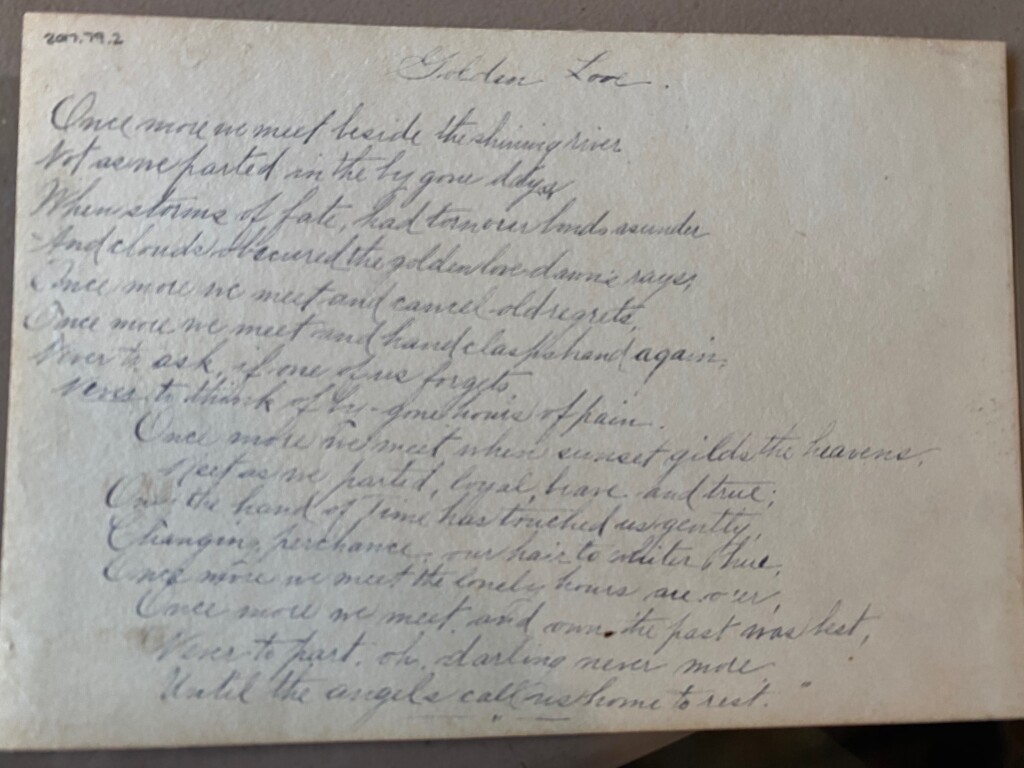 2017.79.2
Golden Love.
Once more we meet beside the shining river
Not as we parted in the by gone days
When storms of fate, had torn our bonds asunder
And clouds obscured the golden love-dawn's rays;
Once more we meet and cancel old regrets,
Once more we meet and hand clasps hand again;
Never to ask, if one of us forgets
Never to think of by-gone hours of pain.
Once more we meet when sunset gilds the heavens,
Meet as we parted, loyal, brave and true;
Only the hand of Time has touched us gently,
Changing, perchance, our hair to whiter hue,
Once more we meet the lonely hours are o'er,
Once more we meet and own the past was best,
Never to part, oh, darling never more
Until the angels call us home to rest."